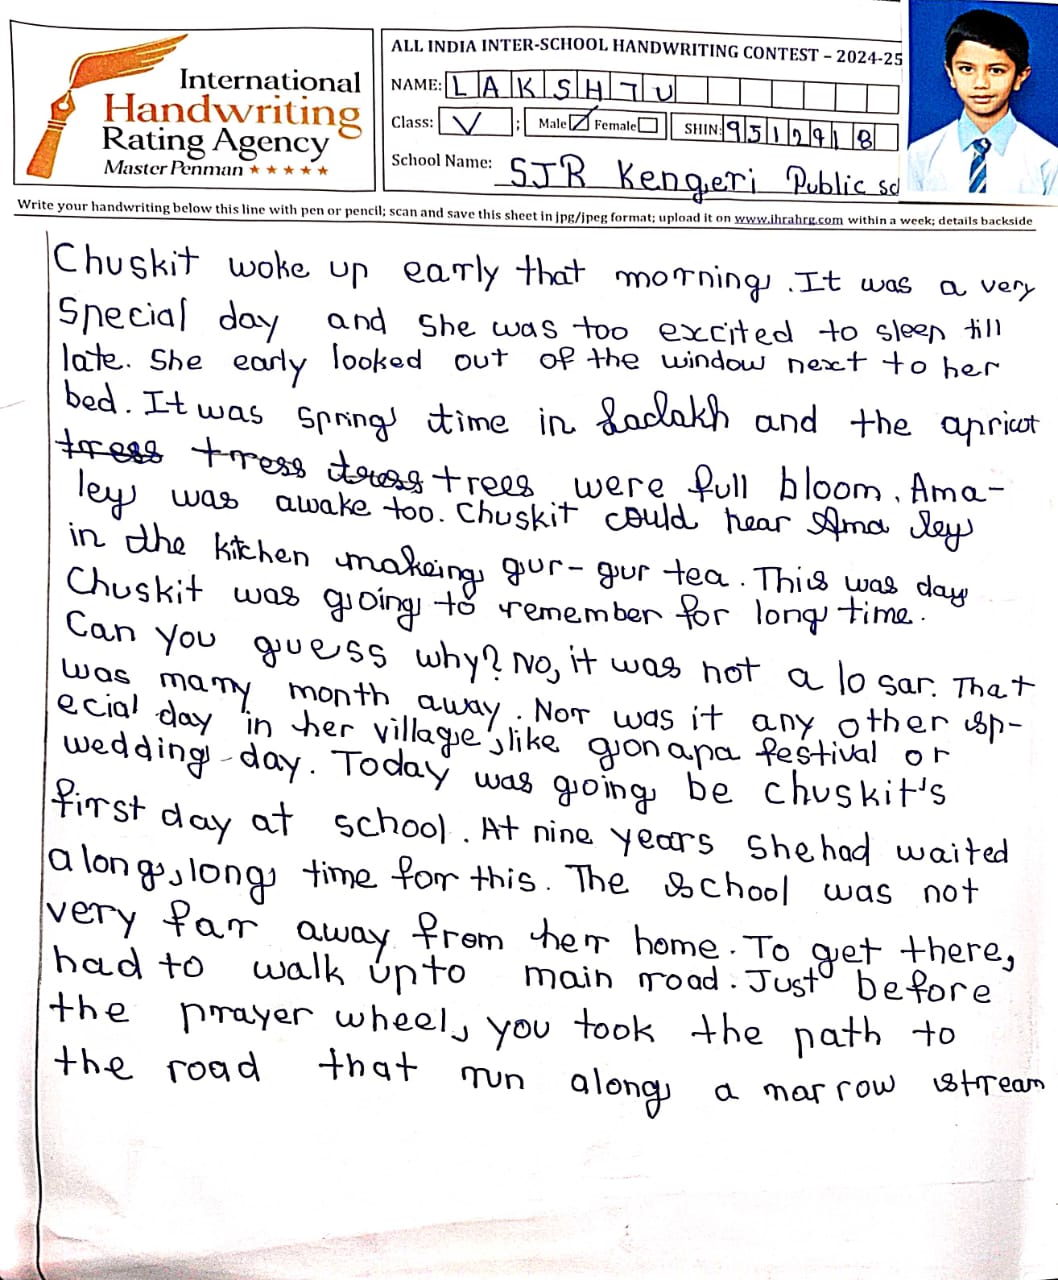 International
Handwriting
Rating Agency
Master Penman ★★★★★
ALL INDIA INTER-SCHOOL HANDWRITING CONTEST – 2024-25
NAME: LAKSHTU
Class: V ; Male ☑ Female ☐ SHIN: 9512918
School Name: SJR Kengeri Public sc
Write your handwriting below this line with pen or pencil; scan and save this sheet in jpg/jpeg format; upload it on www.ihrahrg.com within a week; details backside
Chuskit woke up early that morning. It was a very
special day and she was too excited to sleep till
late. She early looked out of the window next to her
bed. It was spring time in Ladakh and the apricot
tress tress tress trees were full bloom. Ama-
ley was awake too. Chuskit could hear Ama ley
in the kitchen makeing gur-gur tea. This was day
Chuskit was going to remember for long time.
Can you guess why? No, it was not a lo sar. That
was many month away. Nor was it any other sp-
ecial day in her village, like gonapa festival or
wedding-day. Today was going be chuskit's
first day at school. At nine years she had waited
a long, long time for this. The school was not
very far away from her home. To get there,
had to walk upto main road. Just before
the prayer wheel, you took the path to
the road that run along a marrow stream